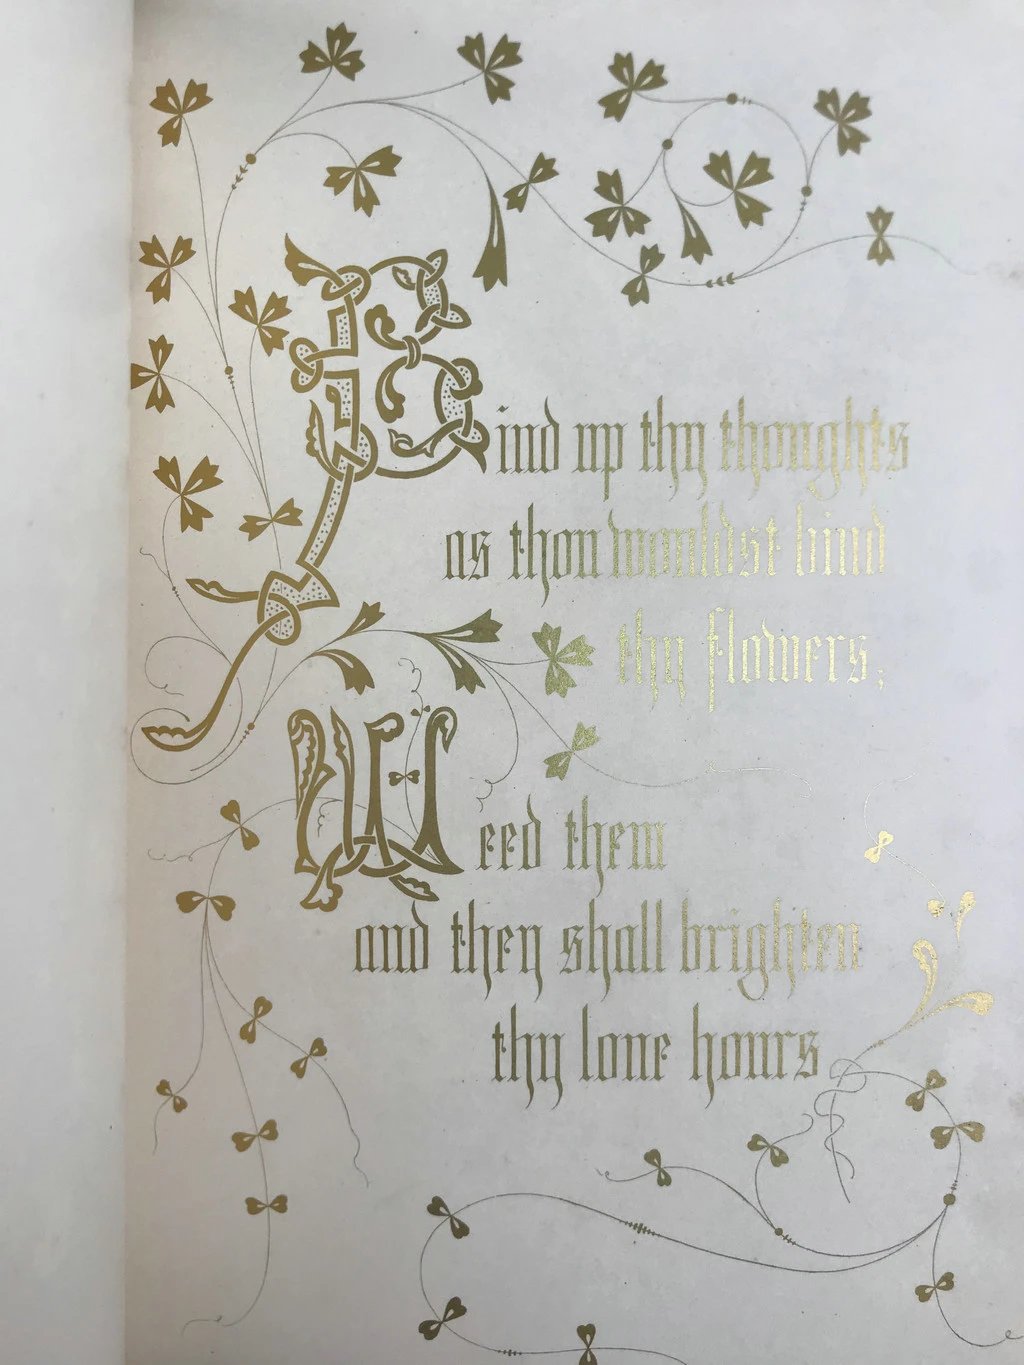 Bind up thy thoughts
as thou wouldst bind
thy flowers;
Weed them
and they shall brighten
thy lone hours